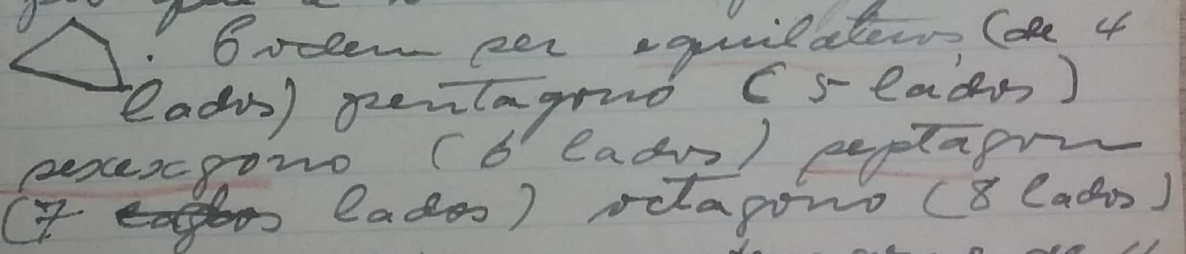 . Podem ser equiláteros, (de 4
lados) pentágono (5 lados)
sexexgono (6 lados) septágon
(7 lados) octágono (8 lados)